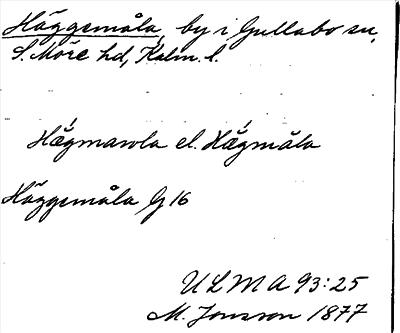 Häggemåla, by i Gullabo sn,
S. Möre hd, Kalm. l.
Hägmawla el. Hägmåla
Häggemåla G 16
ULMA 93:25
M. Jonsson 1877